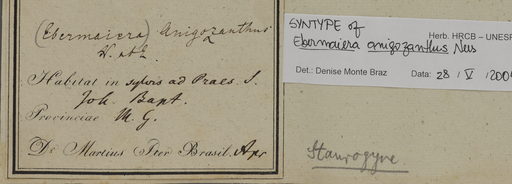 (Ebermaiera) Anigozanthus
N. ab E.
Habitat in sylvis ad Praes. S.
Joh. Bapt.
Provinciae M. G.
De Martius Iter Brasil. Apr
SYNTYPE of
Ebermaiera anigozanthus Nees
Herb. HRCB – UNESP
Det.: Denise Monte Braz Data: 28 / V / 200
Staurogyne